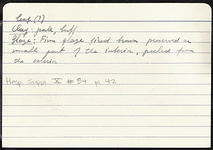 Lamp (?)
Clay: pink, buff
Glaze: Firm glaze fired brown preserved on
small part of the interior, peeled from
the exterior
Hesp. Suppl. X # 54 p. 42